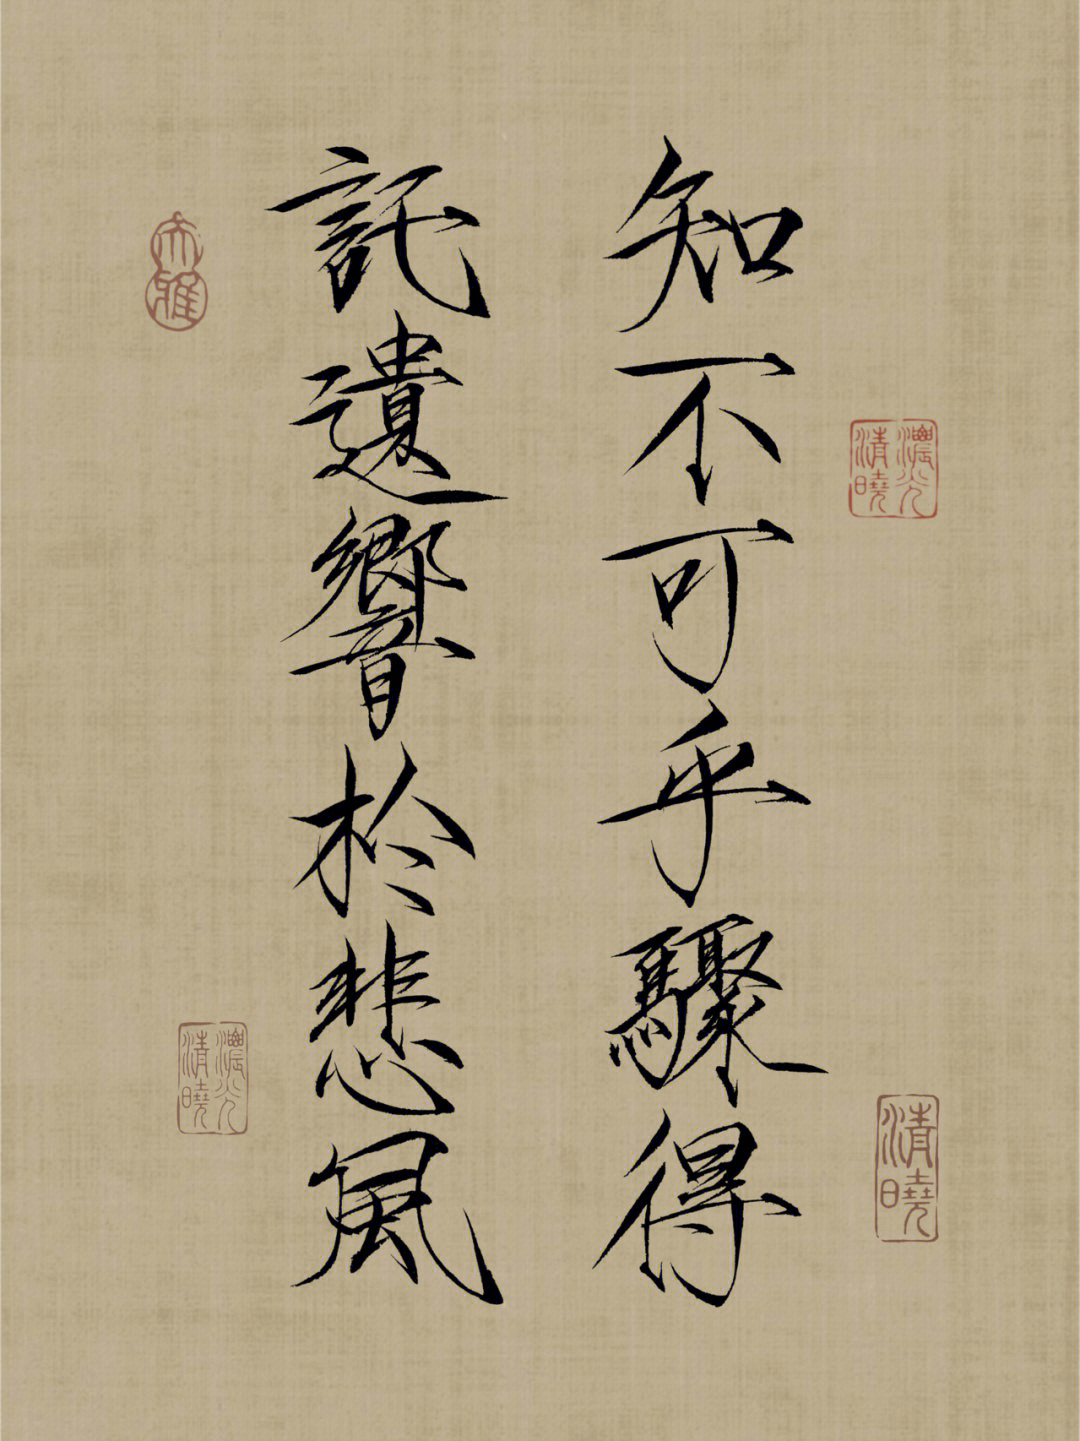 知不可乎驟得
託遺響於悲風
濃光清曉
清曉
大雅
濃光清曉